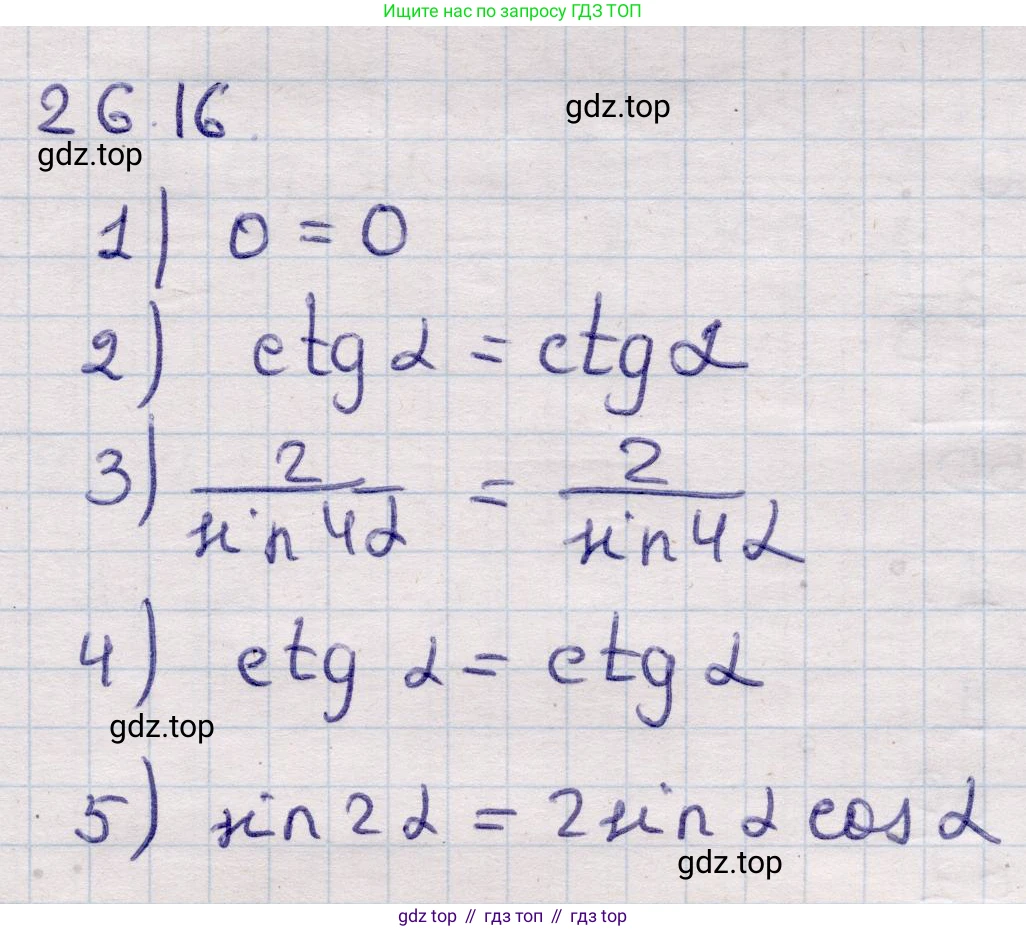 Ищите нас по запросу ГДЗ ТОП
26.16.
gdz.top
gdz.top
1) 0 = 0
2) ctg α = ctg α
3) 2/sin 4α = 2/sin 4α
4) ctg α = ctg α
gdz.top
5) sin 2α = 2 sin α cos α
gdz.top
gdz top // гдз топ // gdz top